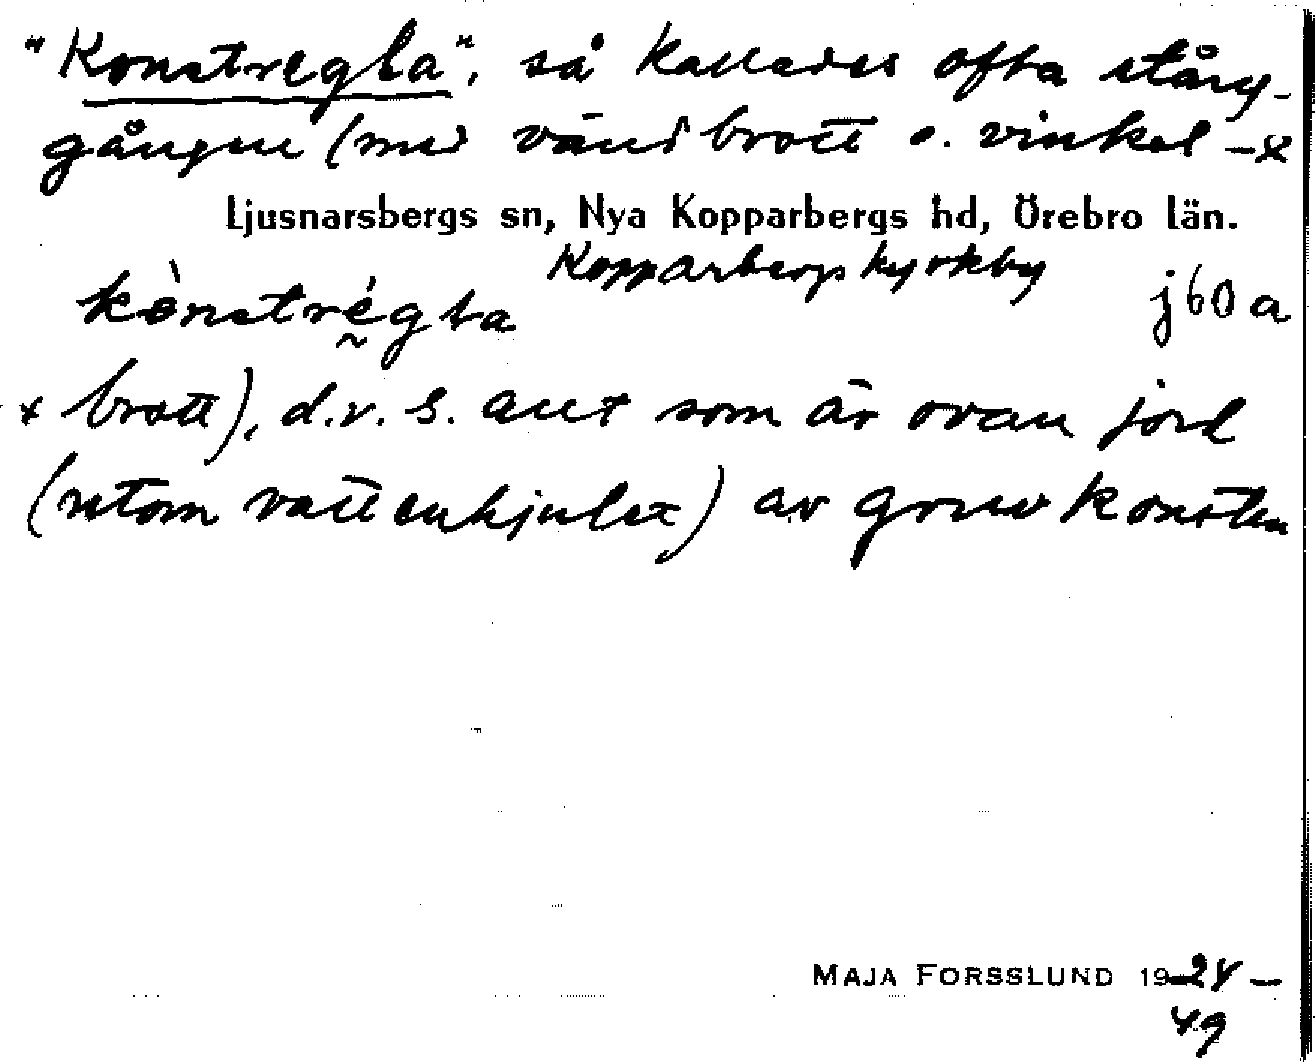 "Konstregla", så kallades ofta stång-
gången (med vändbrott o. vinkel-x
Ljusnarsbergs sn, Nya Kopparbergs hd, Örebro län.
Kopparbergs kyrkby
kònstrégla j60a
x brott), d.v.s. allt som är ovan jord
(utom vattenhjulet) av gruvkonsten
MAJA FORSSLUND 1924-
49